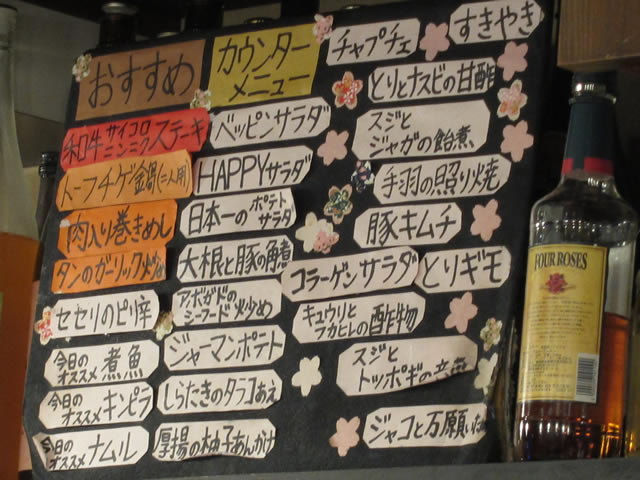 おすすめ
和牛サイコロ
ニンニクステーキ
トーフチゲ鍋(二人用)
肉入り巻きめし
タンのガーリック炒め
セセリのピリ辛
今日の
オススメ 煮魚
今日の
オススメ キンピラ
今日の
オススメ ナムル
カウンター
メニュー
ベッピンサラダ
HAPPYサラダ
日本一のポテト
サラダ
大根と豚の角煮
アボガドの
シーフード炒め
ジャーマンポテト
しらたきのタラコあえ
厚揚の柚子あんかけ
チャプチェ
すきやき
とりとナスビの甘酢
スジと
ジャガの飴煮
手羽の照り焼
豚キムチ
コラーゲンサラダ
とりギモ
キュウリと
フカヒレの酢物
スジと
トッポギの
ジャコと万願
FOUR ROSES